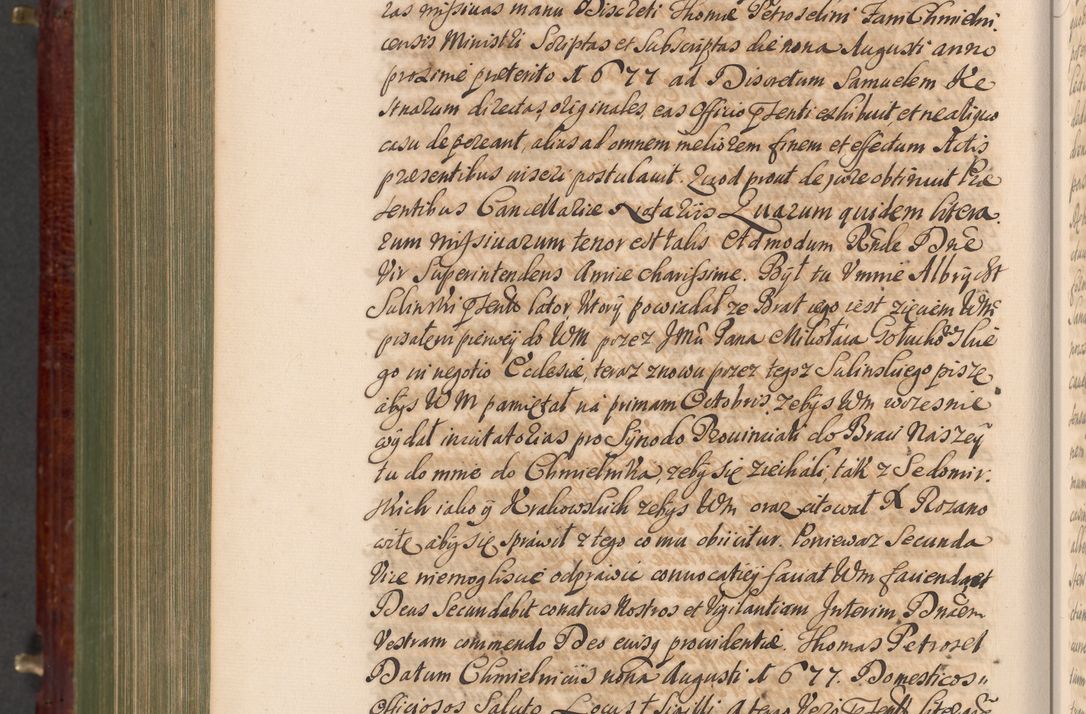 ras missivas manu Discreti Thomæ Petroselini Zam Chmielni
censis Ministri Scriptas et Subscriptas die nona Augusti anno
proximè preterito 1677 ad Discretum Samuelem He
directas, originales, eas Officio pſenti exhibuit et ne aliquo
casu depereant, alias ad omnem meliorem finem et effectum Actis
præsentibus inseri postulavit. Quod prout de jure obtinuit Præ
sentibus Cancellariæ Notariis Quarum quidem litera
rum missivarum tenor est talis Admodum Rnde Dne
Vir Superintendens Amice charissime. Był tu Ummie Albrycht
Salinski pſentiũ lator, Który powiadał ze Brat iego iest zięciem WM
pisałem pierwey do WM przez Jmći Pana Mikołaia
go in negotio Ecclesiæ, teraz znowu przez tegoz Salinskiego piszę
abys WM pamiętał na primam Octobris, zebys Wm wczesnie
wydał invitatorias pro Synodo Provinciali do Braci Naszey
tu do mnie do Chmielnika, zeby się ziechali, tak z Sedomir-
skich iako y Krakowskich zebys Wm oraz citował X Rozano
witę aby się sprawił z tego co mu obiicitur. Poniewaz Secunda
Vice niemoglisme odprawić convocatiey faciat Wm facienda et
Deus Secundabit conatus Nostros et Vigilantiam Interim Dnãem
Vestram commendo Deo eiusq providentiæ. Thomas Petrosel
Datum Chmielniciis nona Augusti 1677. Domesticos
Officiosos Saluto Locus Sigilli A tergo Vero